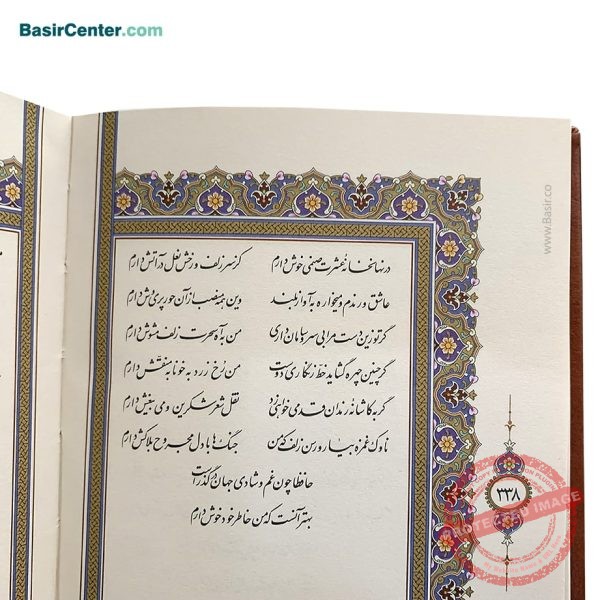 BasirCenter.com
در نهانخانهٔ عشرت صنمی خوش دارم
کز سر زلف و رخش نعل در آتش دارم
عاشق و رندم و میخواره به آواز بلند
وین همه منصب از آن حور پریوش دارم
گر تو زین دست مرا بی سر و سامان داری
من به آه سحرت زلف مشوش دارم
گر چنین چهره گشاید خط زنگاری دوست
من رخ زرد به خونابه منقش دارم
گر به کاشانهٔ رندان قدمی خواهی زد
نقل شعر شکرین و می بیغش دارم
ناوک غمزه بیار و رسن زلف که من
جنگ‌ها با دل مجروح بلاکش دارم
حافظا چون غم و شادی جهان در گذر است
بهتر آنست که من خاطر خود خوش دارم
۳۳۸
www.Basir.co
PROTECTED IMAGE